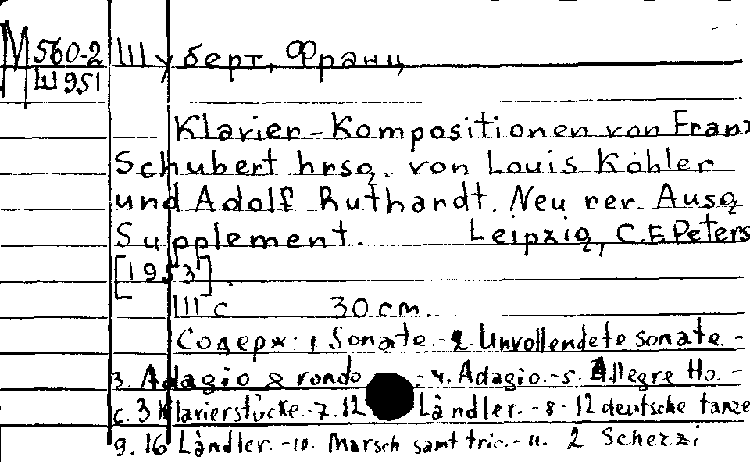 М 560-2 Шуберт, Франц
Ш 951
Klavier-Kompositionen von Franz
Schubert hrsg. von Louis Köhler
und Adolf Ruthardt. Neu rev. Ausg
Supplement. Leipzig, C.F.Peters
[1953].
111 с 30 cm.
Содерж: 1. Sonate.-2. Unvollendete sonate.-
3. Adagio & rondo -4. Adagio.-5. Allegre
6. 3 Klavierstücke.-7. 12 Ländler.-8-12 deutsche tänze
9. 16 Ländler.-10. Marsch samt trio.-11. 2 Scherzi